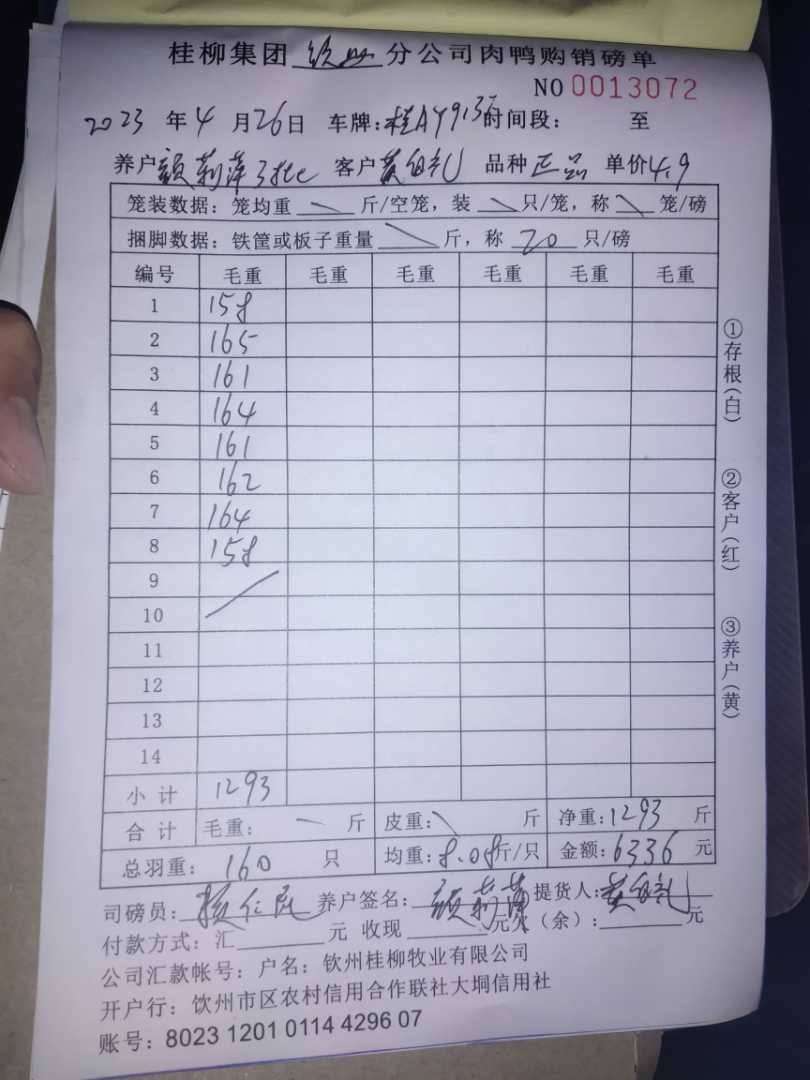 桂柳集团 钦州 分公司肉鸭购销磅单
NO 0013072
2023 年 4 月 26 日 车牌: 桂AY913 时间段: 至
养户 颜莉萍3批 客户 黄 礼 品种 正品 单价 4.9
笼装数据: 笼均重 斤/空笼, 装 只/笼, 称 笼/磅
捆脚数据: 铁筐或板子重量 斤, 称 20 只/磅
编号 毛重 毛重 毛重 毛重 毛重 毛重
1 158
2 165
3 161
4 164
5 161
6 162
7 164
8 158
9
10
11
12
13
14
小计 1293
合计 毛重: 斤 皮重: 斤 净重: 1293 斤
总羽重: 160 只 均重: 8.08 斤/只 金额: 6336 元
司磅员: 养户签名: 颜莉萍 提货人: 黄 礼
付款方式: 汇 元 收现 元欠(余): 元
公司汇款帐号: 户名: 钦州桂柳牧业有限公司
开户行: 饮州市区农村信用合作联社大垌信用社
账号: 8023 1201 0114 4296 07
①存根(白)
②客户(红)
③养户(黄)